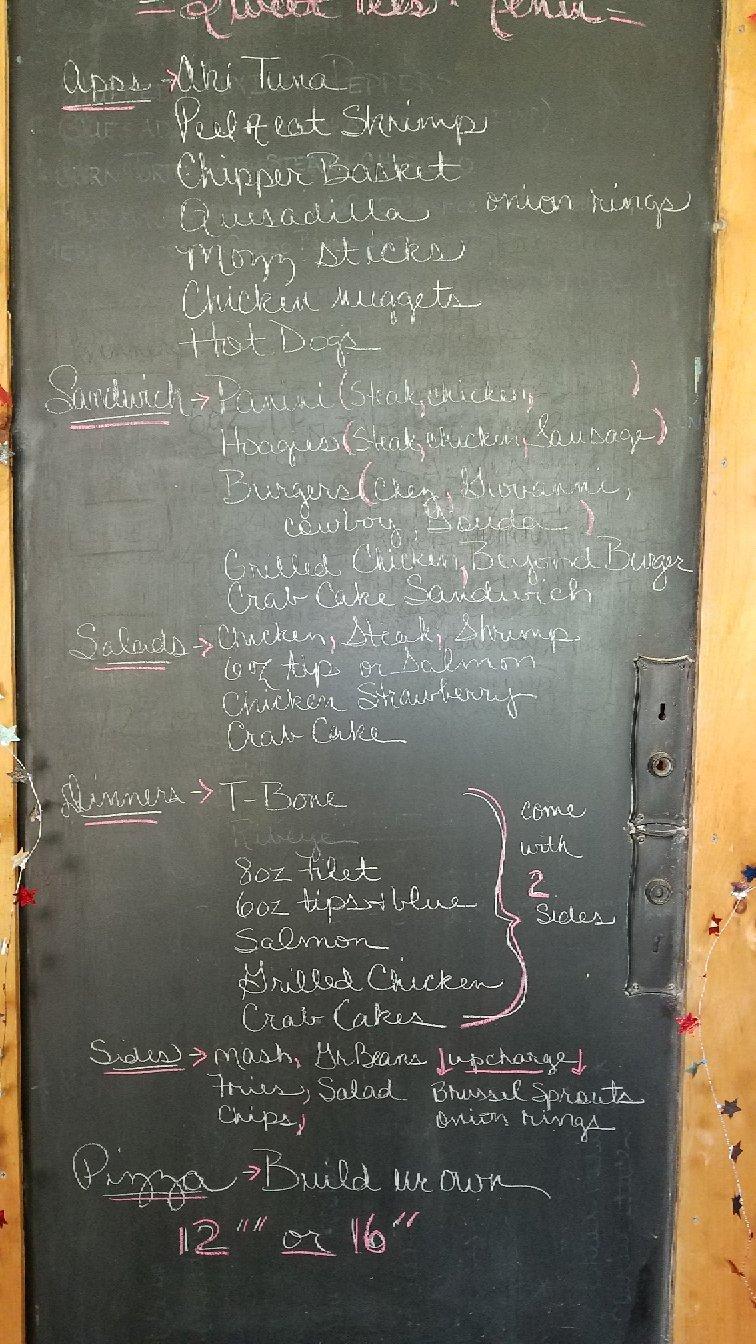 Apps → Ahi Tuna
Peel & eat Shrimp
Chipper Basket
Quesadilla onion rings
Mozz sticks
Chicken nuggets
Hot Dogs
Sandwich → Panini (Steak, chicken, )
Hoagies (Steak, chicken, Sausage)
Burgers (chez, Giovanni,
cowboy, Gouda )
Grilled Chicken, Beyond Burger
Crab Cake Sandwich
Salads → Chicken, Steak, Shrimp
6oz tip or Salmon
Chicken Strawberry
Crab Cake
Dinners → T-Bone come
Ribeye with
8oz Filet 2
6oz tips + blue Sides
Salmon
Grilled Chicken
Crab Cakes
Sides → mash, Gr Beans ↓upcharge↓
Fries, Salad Brussel Sprouts
Chips, onion rings
Pizza → Build ur own
12"" or 16"